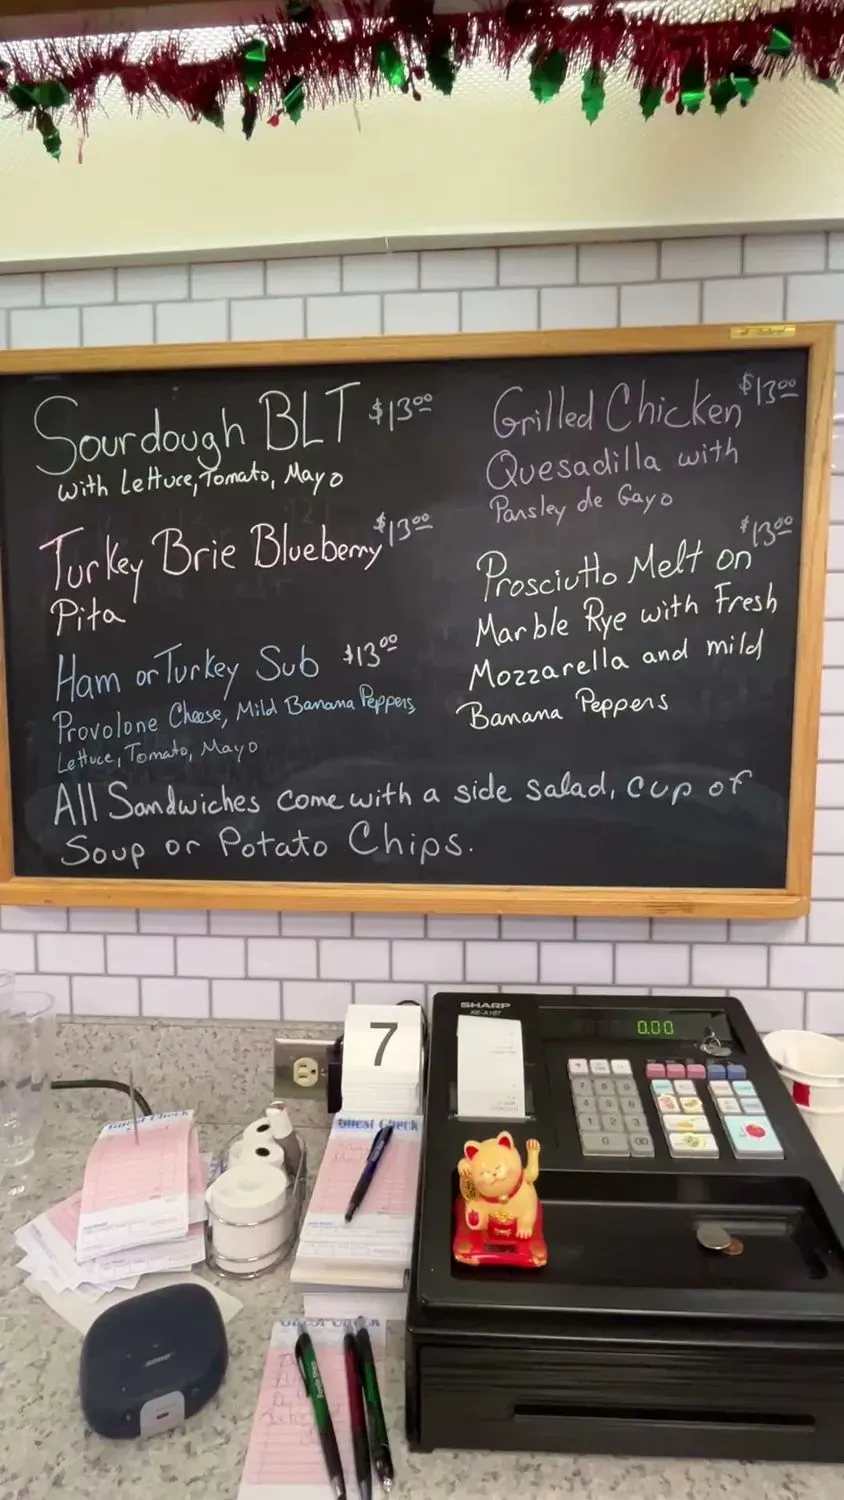 Sourdough BLT $13.00
with Lettuce, Tomato, Mayo
Turkey Brie Blueberry $13.00
Pita
Ham or Turkey Sub $13.00
Provolone Cheese, Mild Banana Peppers,
Lettuce, Tomato, Mayo
Grilled Chicken $13.00
Quesadilla with
Pansley de Gayo
Prosciutto Melt on $13.00
Marble Rye with Fresh
Mozzarella and mild
Banana Peppers
All Sandwiches come with a side salad, cup of
Soup or Potato Chips.
SHARP
XE-A107
0.00
7
Guest Check
Guest Check
Guest Check
7 8 9
4 5 6
1 2 3
0 00
BOSE